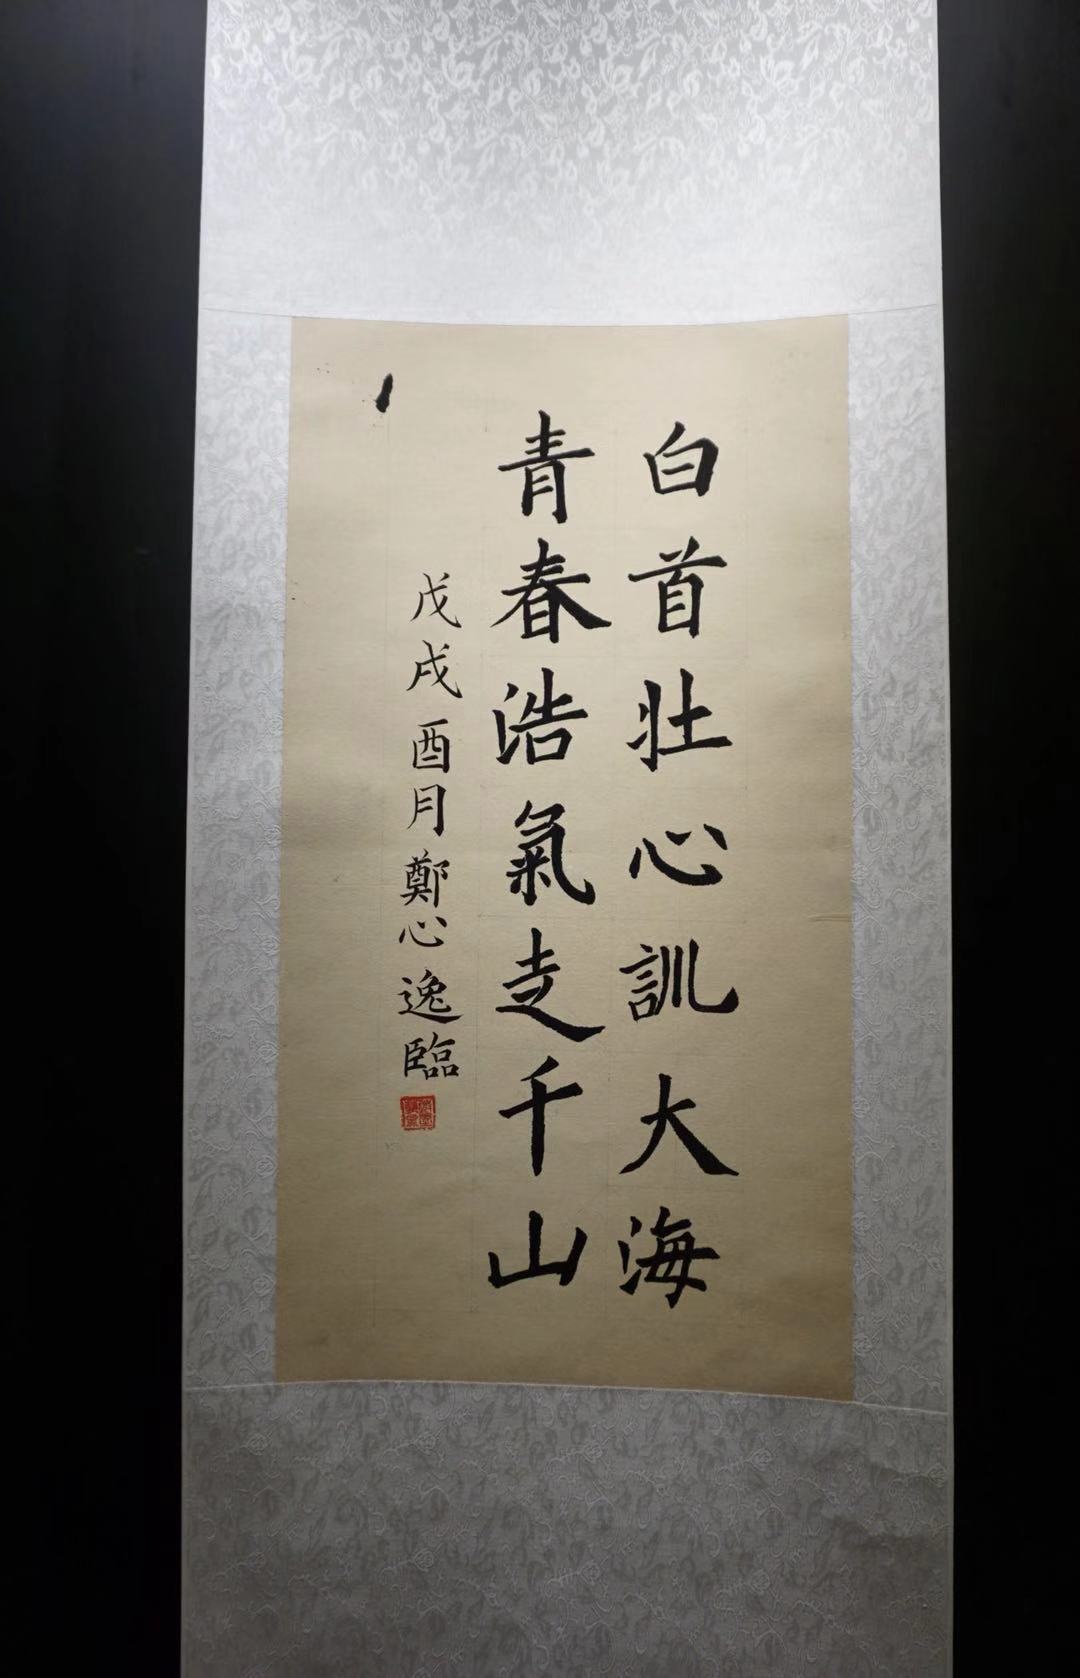 白首壯心訓大海
青春浩氣走千山
戊戌酉月鄭心逸臨